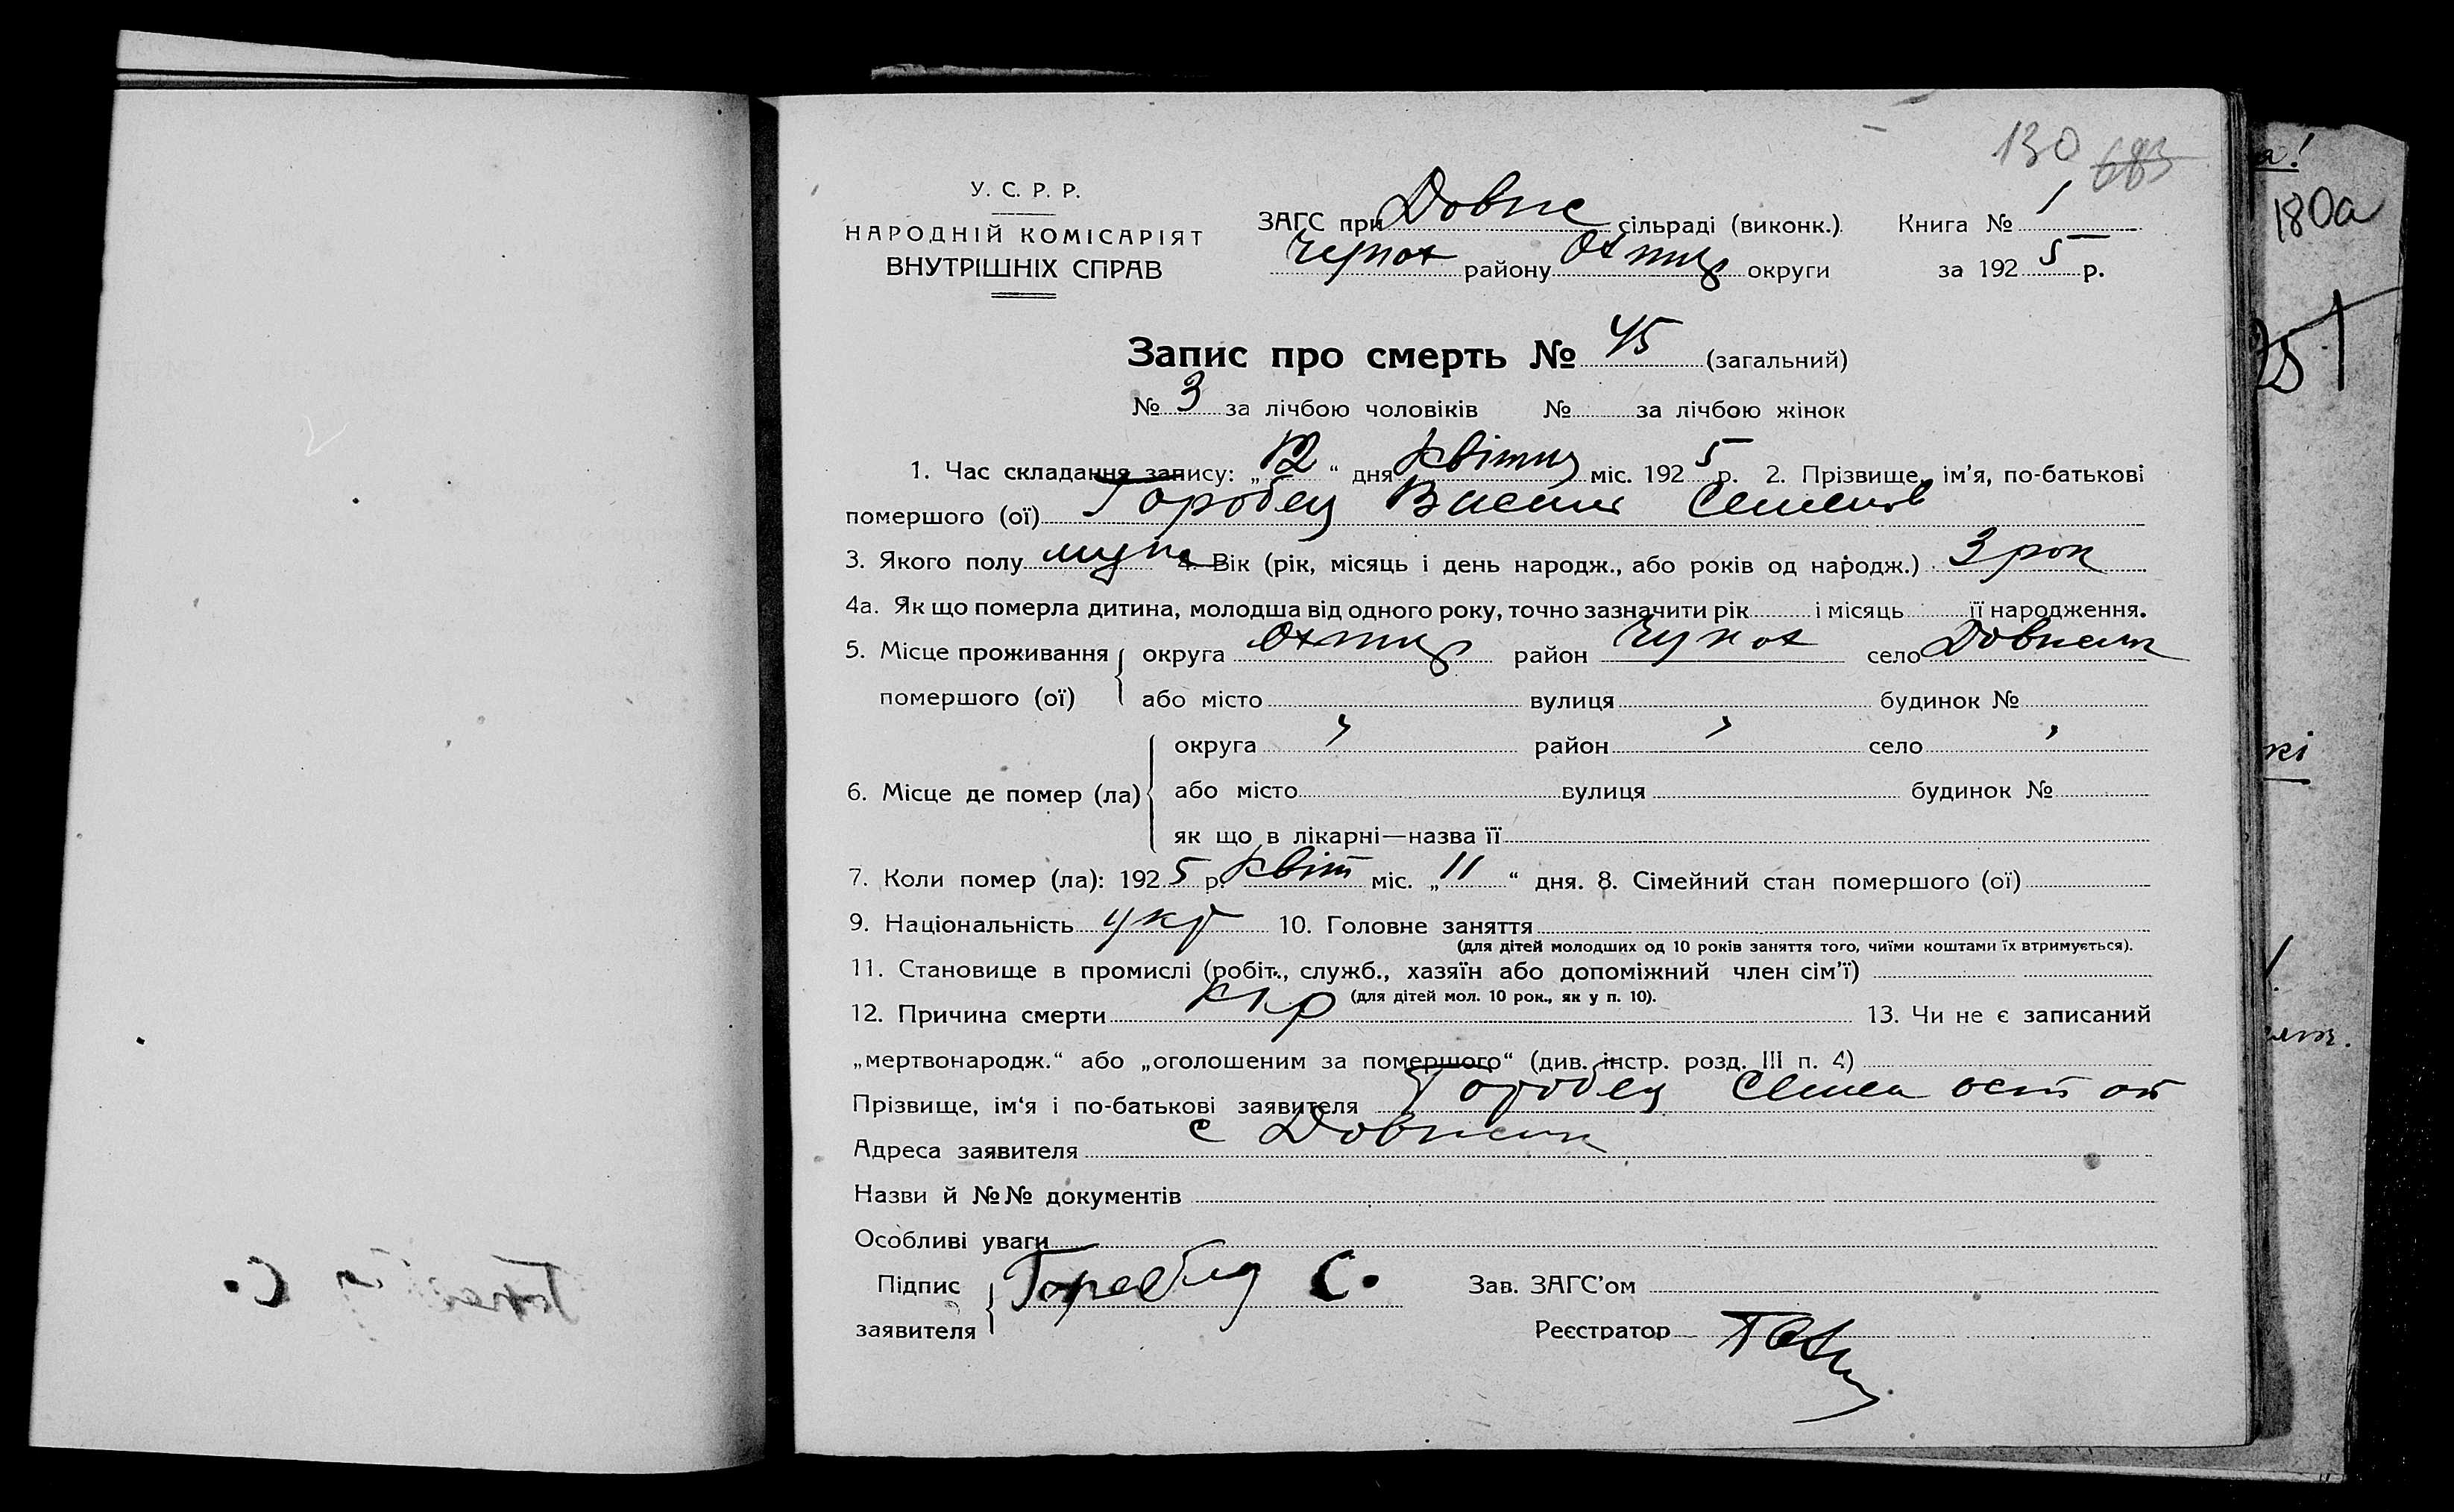 130 683
У. С. Р. Р.
НАРОДНІЙ КОМІСАРІЯТ
ВНУТРІШНІХ СПРАВ
ЗАГС при Довпс сільраді (виконк.). Книга № 1
Чупах району Охтир округи за 1925 р.
Запис про смерть № 45 (загальний)
№ 3 за лічбою чоловіків № за лічбою жінок
1. Час складання запису: „12“ дня квітня міс. 1925 р. 2. Прізвище, ім'я, по-батькові
помершого (ої) Горобец Василь Семенов
3. Якого полу муж 4. Вік (рік, місяць і день народж., або років од народж.) 3 рок
4а. Як що померла дитина, молодша від одного року, точно зазначити рік і місяць її народження.
5. Місце проживання помершого (ої) округа Охтир район Чупах село
або місто вулиця будинок №
6. Місце де помер (ла) округа " район " село "
або місто вулиця будинок №
як що в лікарні—назва її
7. Коли помер (ла): 1925 р. квіт міс. „11“ дня. 8. Сімейний стан помершого (ої)
9. Національність укр 10. Головне заняття
(для дітей молодших од 10 років заняття того, чиїми коштами їх втримується).
11. Становище в промислі (робіт., служб., хазяїн або допоміжний член сім'ї)
(для дітей мол. 10 рок., як у п. 10).
12. Причина смерти кір 13. Чи не є записаний
„мертвонародж.“ або „оголошеним за помершого“ (див. інстр. розд. III п. 4)
Прізвище, ім'я і по-батькові заявителя Горобец Семен
Адреса заявителя с
Назви й №№ документів
Особливі уваги
Підпис заявителя Горобец С. Зав. ЗАГС'ом
Реєстратор
180а